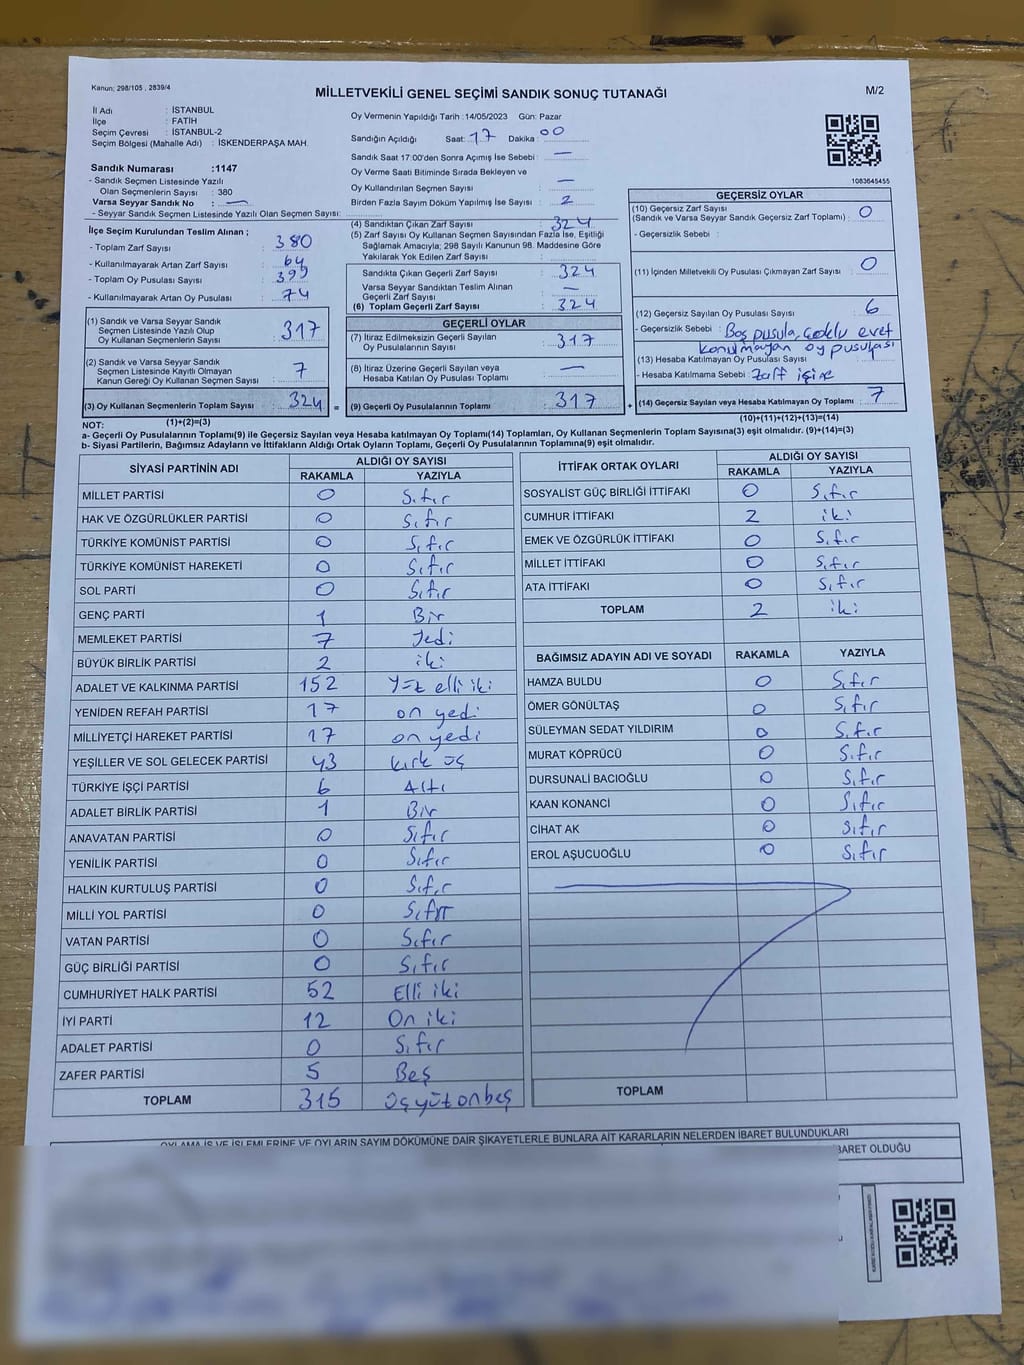 Kanun; 298/105 , 2839/4
MİLLETVEKİLİ GENEL SEÇİMİ SANDIK SONUÇ TUTANAĞI
M/2
İl Adı : İSTANBUL
İlçe : FATİH
Seçim Çevresi : İSTANBUL-2
Seçim Bölgesi (Mahalle Adı) : İSKENDERPAŞA MAH.
Sandık Numarası :1147
- Sandık Seçmen Listesinde Yazılı
Olan Seçmenlerin Sayısı : 380
Varsa Seyyar Sandık No : —
- Seyyar Sandık Seçmen Listesinde Yazılı Olan Seçmen Sayısı:
İlçe Seçim Kurulundan Teslim Alınan ;
- Toplam Zarf Sayısı : 380
- Kullanılmayarak Artan Zarf Sayısı : 64
- Toplam Oy Pusulası Sayısı : 399
- Kullanılmayarak Artan Oy Pusulası : 74
(1) Sandık ve Varsa Seyyar Sandık
Seçmen Listesinde Yazılı Olup
Oy Kullanan Seçmenlerin Sayısı : 317
(2) Sandık ve Varsa Seyyar Sandık
Seçmen Listesinde Kayıtlı Olmayan
Kanun Gereği Oy Kullanan Seçmen Sayısı : 7
(3) Oy Kullanan Seçmenlerin Toplam Sayısı : 324 =
Oy Vermenin Yapıldığı Tarih :14/05/2023 Gün: Pazar
Sandığın Açıldığı Saat: 17 Dakika : 00
Sandık Saat 17:00'den Sonra Açımış İse Sebebi : —
Oy Verme Saati Bitiminde Sırada Bekleyen ve
Oy Kullandırılan Seçmen Sayısı : —
Birden Fazla Sayım Döküm Yapılmış İse Sayısı : 2
(4) Sandıktan Çıkan Zarf Sayısı : 324
(5) Zarf Sayısı Oy Kullanan Seçmen Sayısından Fazla İse, Eşitliği
Sağlamak Amacıyla; 298 Sayılı Kanunun 98. Maddesine Göre
Yakılarak Yok Edilen Zarf Sayısı :
Sandıkta Çıkan Geçerli Zarf Sayısı : 324
Varsa Seyyar Sandıktan Teslim Alınan
Geçerli Zarf Sayısı : —
(6) Toplam Geçerli Zarf Sayısı : 324
GEÇERLİ OYLAR
(7) İtiraz Edilmeksizin Geçerli Sayılan
Oy Pusulalarının Sayısı : 317
(8) İtiraz Üzerine Geçerli Sayılan veya
Hesaba Katılan Oy Pusulası Toplamı : —
(9) Geçerli Oy Pusulalarının Toplamı : 317 +
1083645455
GEÇERSİZ OYLAR
(10) Geçersiz Zarf Sayısı
(Sandık ve Varsa Seyyar Sandık Geçersiz Zarf Toplamı) : 0
- Geçersizlik Sebebi :
(11) İçinden Milletvekili Oy Pusulası Çıkmayan Zarf Sayısı : 0
(12) Geçersiz Sayılan Oy Pusulası Sayısı : 6
- Geçersizlik Sebebi : Boş pusula, çoklu evet
konulmayan oy pusulası
(13) Hesaba Katılmayan Oy Pusulası Sayısı
- Hesaba Katılmama Sebebi :
(14) Geçersiz Sayılan veya Hesaba Katılmayan Oy Toplamı : 7
(10)+(11)+(12)+(13)=(14)
NOT: (1)+(2)=(3)
a- Geçerli Oy Pusulalarının Toplamı(9) ile Geçersiz Sayılan veya Hesaba katılmayan Oy Toplamı(14) Toplamları, Oy Kullanan Seçmenlerin Toplam Sayısına(3) eşit olmalıdır. (9)+(14)=(3)
b- Siyasi Partilerin, Bağımsız Adayların ve İttifakların Aldığı Ortak Oyların Toplamı, Geçerli Oy Pusulalarının Toplamına(9) eşit olmalıdır.
SİYASİ PARTİNİN ADI ALDIĞI OY SAYISI
RAKAMLA YAZIYLA
MİLLET PARTİSİ 0 Sıfır
HAK VE ÖZGÜRLÜKLER PARTİSİ 0 Sıfır
TÜRKİYE KOMÜNİST PARTİSİ 0 Sıfır
TÜRKİYE KOMÜNİST HAREKETİ 0 Sıfır
SOL PARTİ 0 Sıfır
GENÇ PARTİ 1 Bir
MEMLEKET PARTİSİ 7 Yedi
BÜYÜK BİRLİK PARTİSİ 2 iki
ADALET VE KALKINMA PARTİSİ 152 Yüz elli iki
YENİDEN REFAH PARTİSİ 17 on yedi
MİLLİYETÇİ HAREKET PARTİSİ 17 on yedi
YEŞİLLER VE SOL GELECEK PARTİSİ 43 kırk üç
TÜRKİYE İŞÇİ PARTİSİ 6 Altı
ADALET BİRLİK PARTİSİ 1 Bir
ANAVATAN PARTİSİ 0 Sıfır
YENİLİK PARTİSİ 0 Sıfır
HALKIN KURTULUŞ PARTİSİ 0 Sıfır
MİLLİ YOL PARTİSİ 0 Sıfır
VATAN PARTİSİ 0 Sıfır
GÜÇ BİRLİĞİ PARTİSİ 0 Sıfır
CUMHURİYET HALK PARTİSİ 52 Elli iki
İYİ PARTİ 12 On iki
ADALET PARTİSİ 0 Sıfır
ZAFER PARTİSİ 5 Beş
TOPLAM 315 üçyüzonbeş
İTTİFAK ORTAK OYLARI ALDIĞI OY SAYISI
RAKAMLA YAZIYLA
SOSYALİST GÜÇ BİRLİĞİ İTTİFAKI 0 Sıfır
CUMHUR İTTİFAKI 2 iki
EMEK VE ÖZGÜRLÜK İTTİFAKI 0 Sıfır
MİLLET İTTİFAKI 0 Sıfır
ATA İTTİFAKI 0 Sıfır
TOPLAM 2 iki
BAĞIMSIZ ADAYIN ADI VE SOYADI RAKAMLA YAZIYLA
HAMZA BULDU 0 Sıfır
ÖMER GÖNÜLTAŞ 0 Sıfır
SÜLEYMAN SEDAT YILDIRIM 0 Sıfır
MURAT KÖPRÜCÜ 0 Sıfır
DURSUNALİ BACIOĞLU 0 Sıfır
KAAN KONANCİ 0 Sıfır
CİHAT AK 0 Sıfır
EROL AŞUCUOĞLU 0 Sıfır
TOPLAM
OYLAMA İŞ VE İŞLEMLERİNE VE OYLARIN SAYIM DÖKÜMÜNE DAİR ŞİKAYETLERLE BUNLARA AİT KARARLARIN NELERDEN İBARET BULUNDUKLARI
BARET OLDUĞU